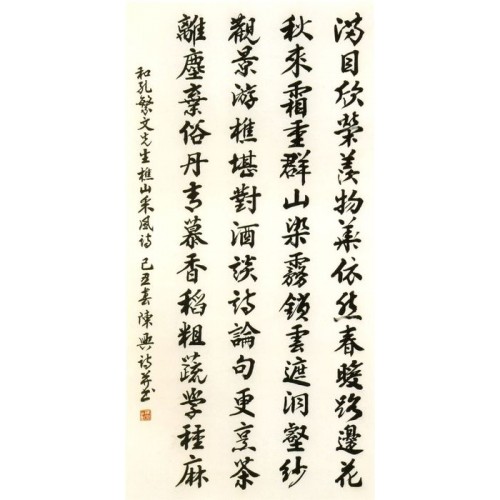 满目欣榮羡物華依然春暖路邊花
秋來霜重群山染霧鎖雲遮洞壑紗
觀景游樵堪對酒談詩論句更烹茶
離塵棄俗丹青慕香稻粗蔬学種麻
和孔繁文先生樵山采風詩 己丑春陳興詩并书